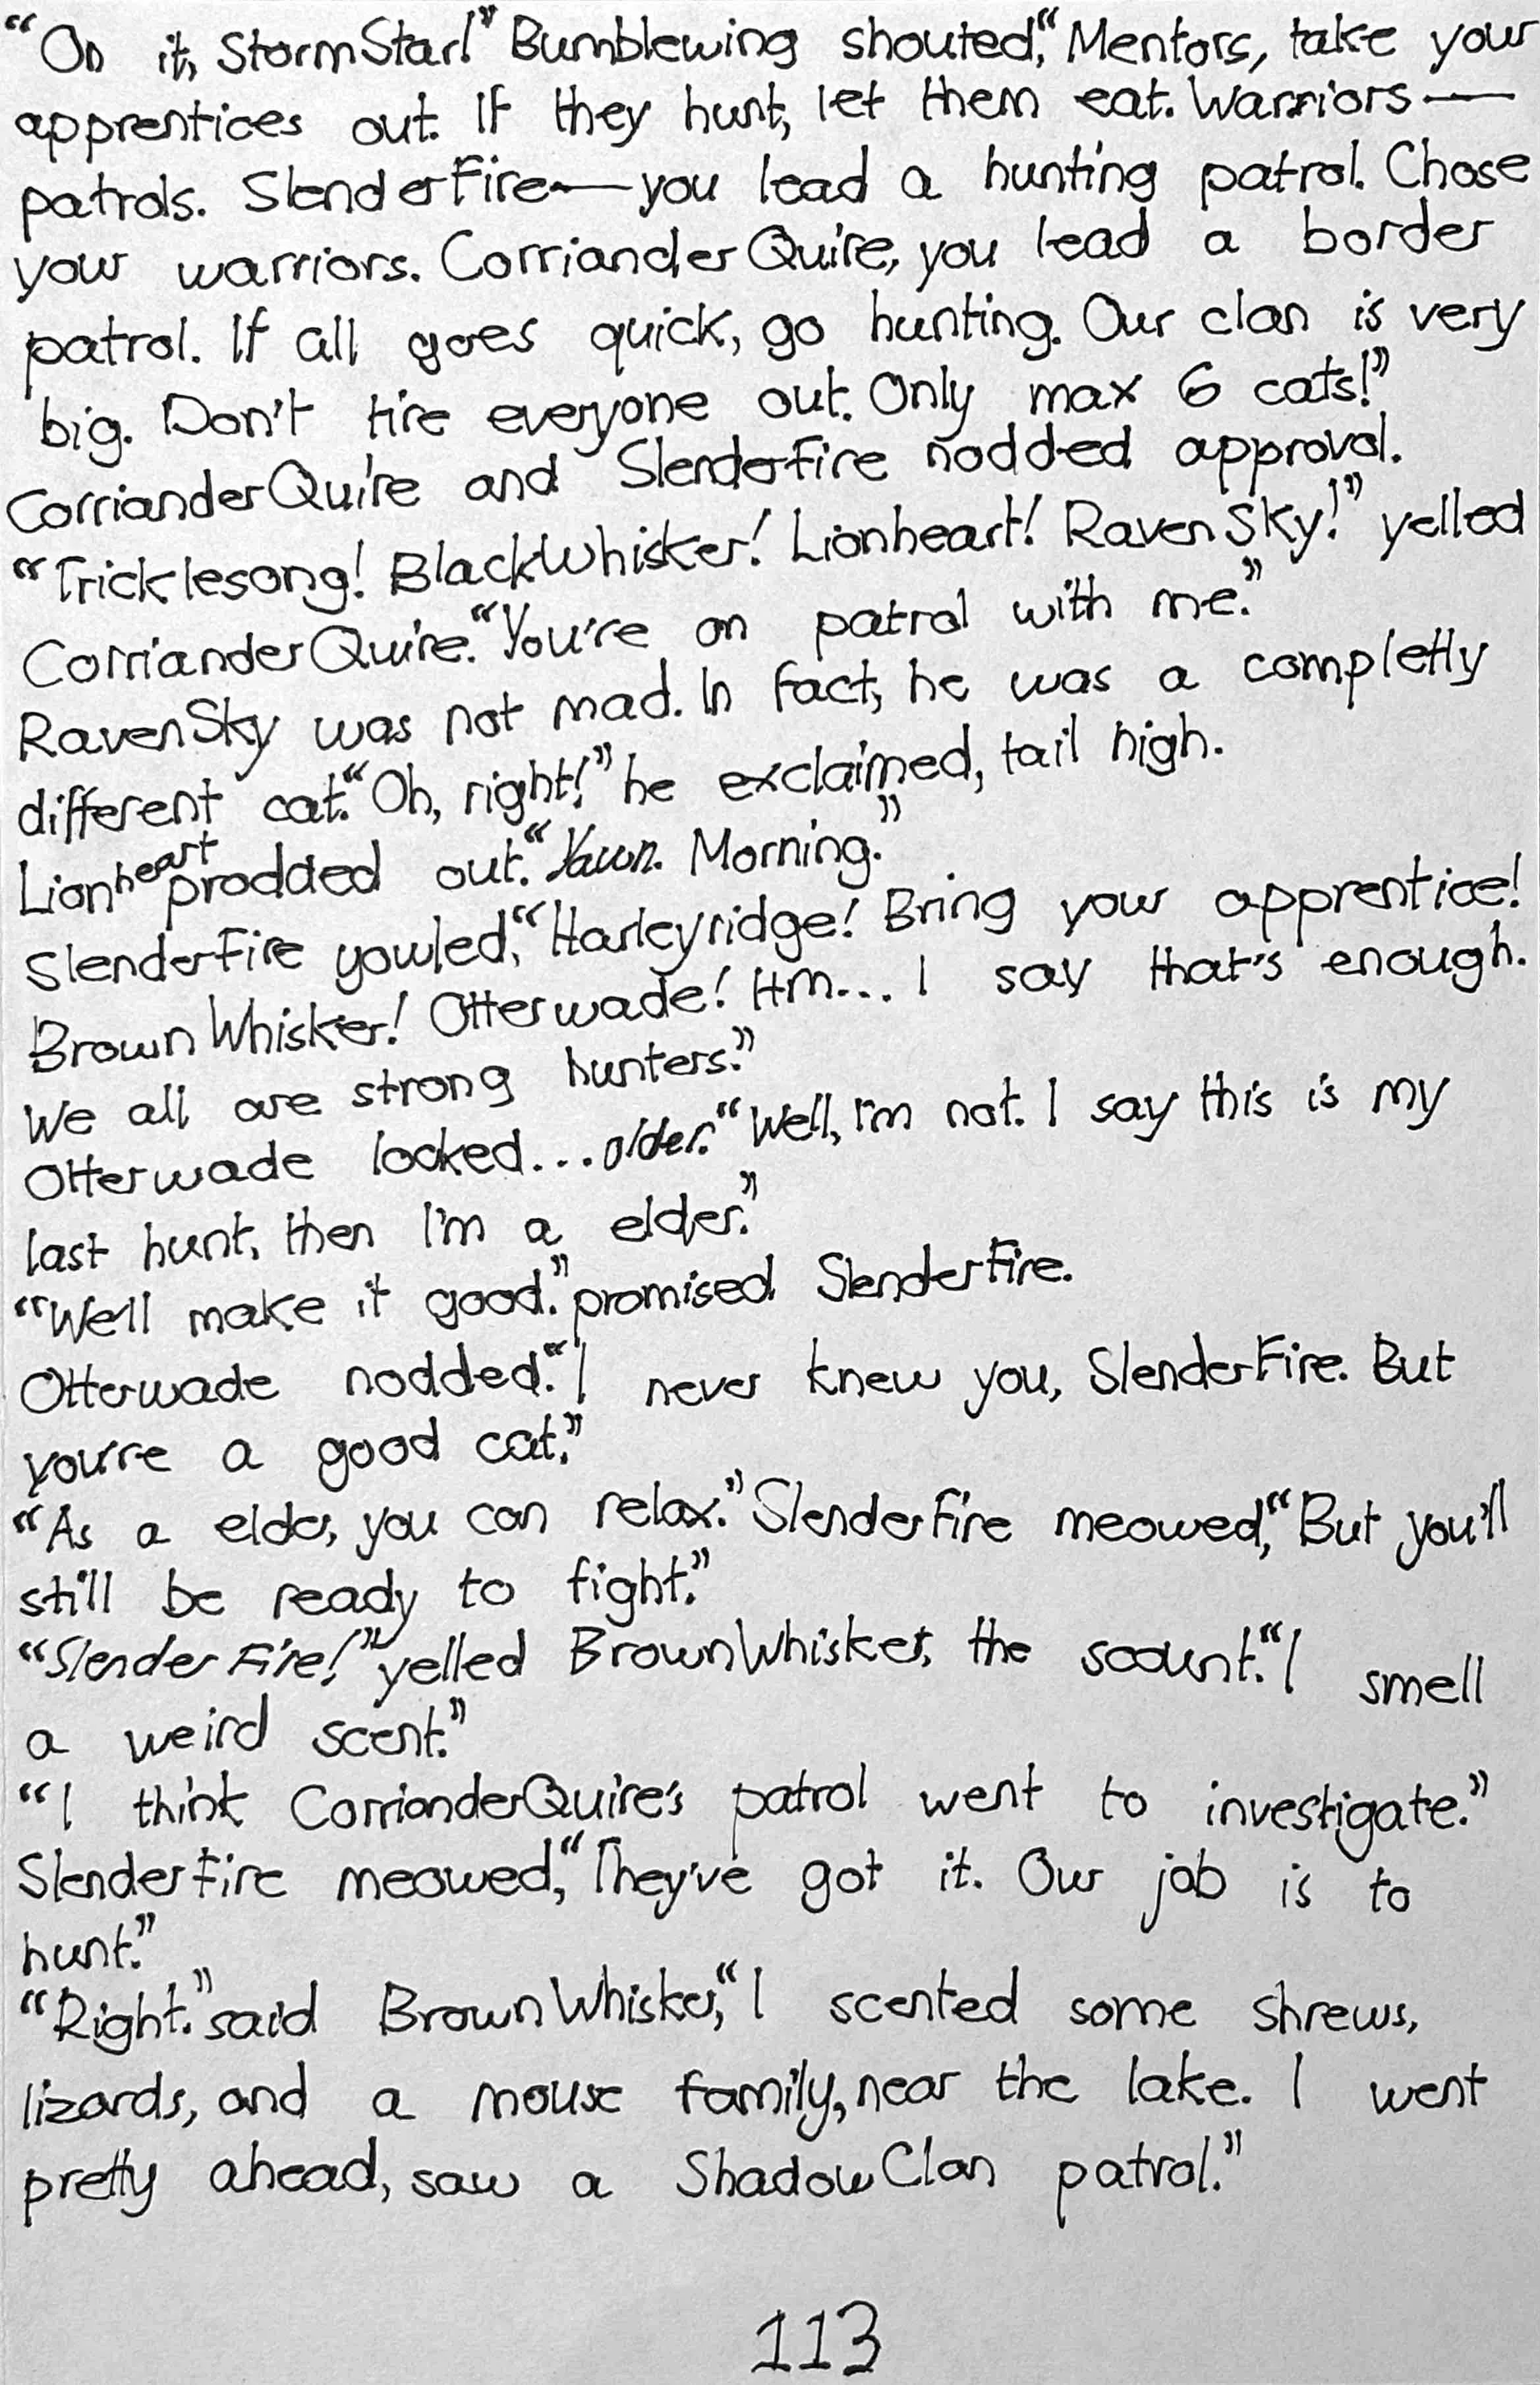 “On it, StormStar!” Bumblewing shouted, “Mentors, take your
apprentices out. If they hunt, let them eat. Warriors—
patrols. SlenderFire—you lead a hunting patrol. Chose
your warriors. CorrianderQuire, you lead a border
patrol. If all goes quick, go hunting. Our clan is very
big. Don't tire everyone out. Only max 6 cats!”
CorrianderQuire and SlenderFire nodded approval.
“Tricklesong! BlackWhisker! Lionheart! RavenSky!” yelled
CorrianderQuire. “You're on patrol with me.”
RavenSky was not mad. In fact, he was a completly
different cat. “Oh, right!” he exclaimed, tail high.
Lionheart prodded out. “Yawn. Morning.”
SlenderFire yowled, “Harleyridge! Bring your apprentice!
BrownWhisker! Otterwade! Hm... I say that's enough.
We all are strong hunters.”
Otterwade looked... older. “Well, I'm not. I say this is my
last hunt, then I'm a elder.”
“We'll make it good.” promised SlenderFire.
Otterwade nodded. “I never knew you, SlenderFire. But
you're a good cat.”
“As a elder, you can relax.” SlenderFire meowed, “But you'll
still be ready to fight.”
“SlenderFire!” yelled BrownWhisker, the scount. “I smell
a weird scent.”
“I think CorrianderQuire's patrol went to investigate.”
SlenderFire meowed, “They've got it. Our job is to
hunt.”
“Right.” said BrownWhisker, “I scented some shrews,
lizards, and a mouse family, near the lake. I went
pretty ahead, saw a ShadowClan patrol.”
113